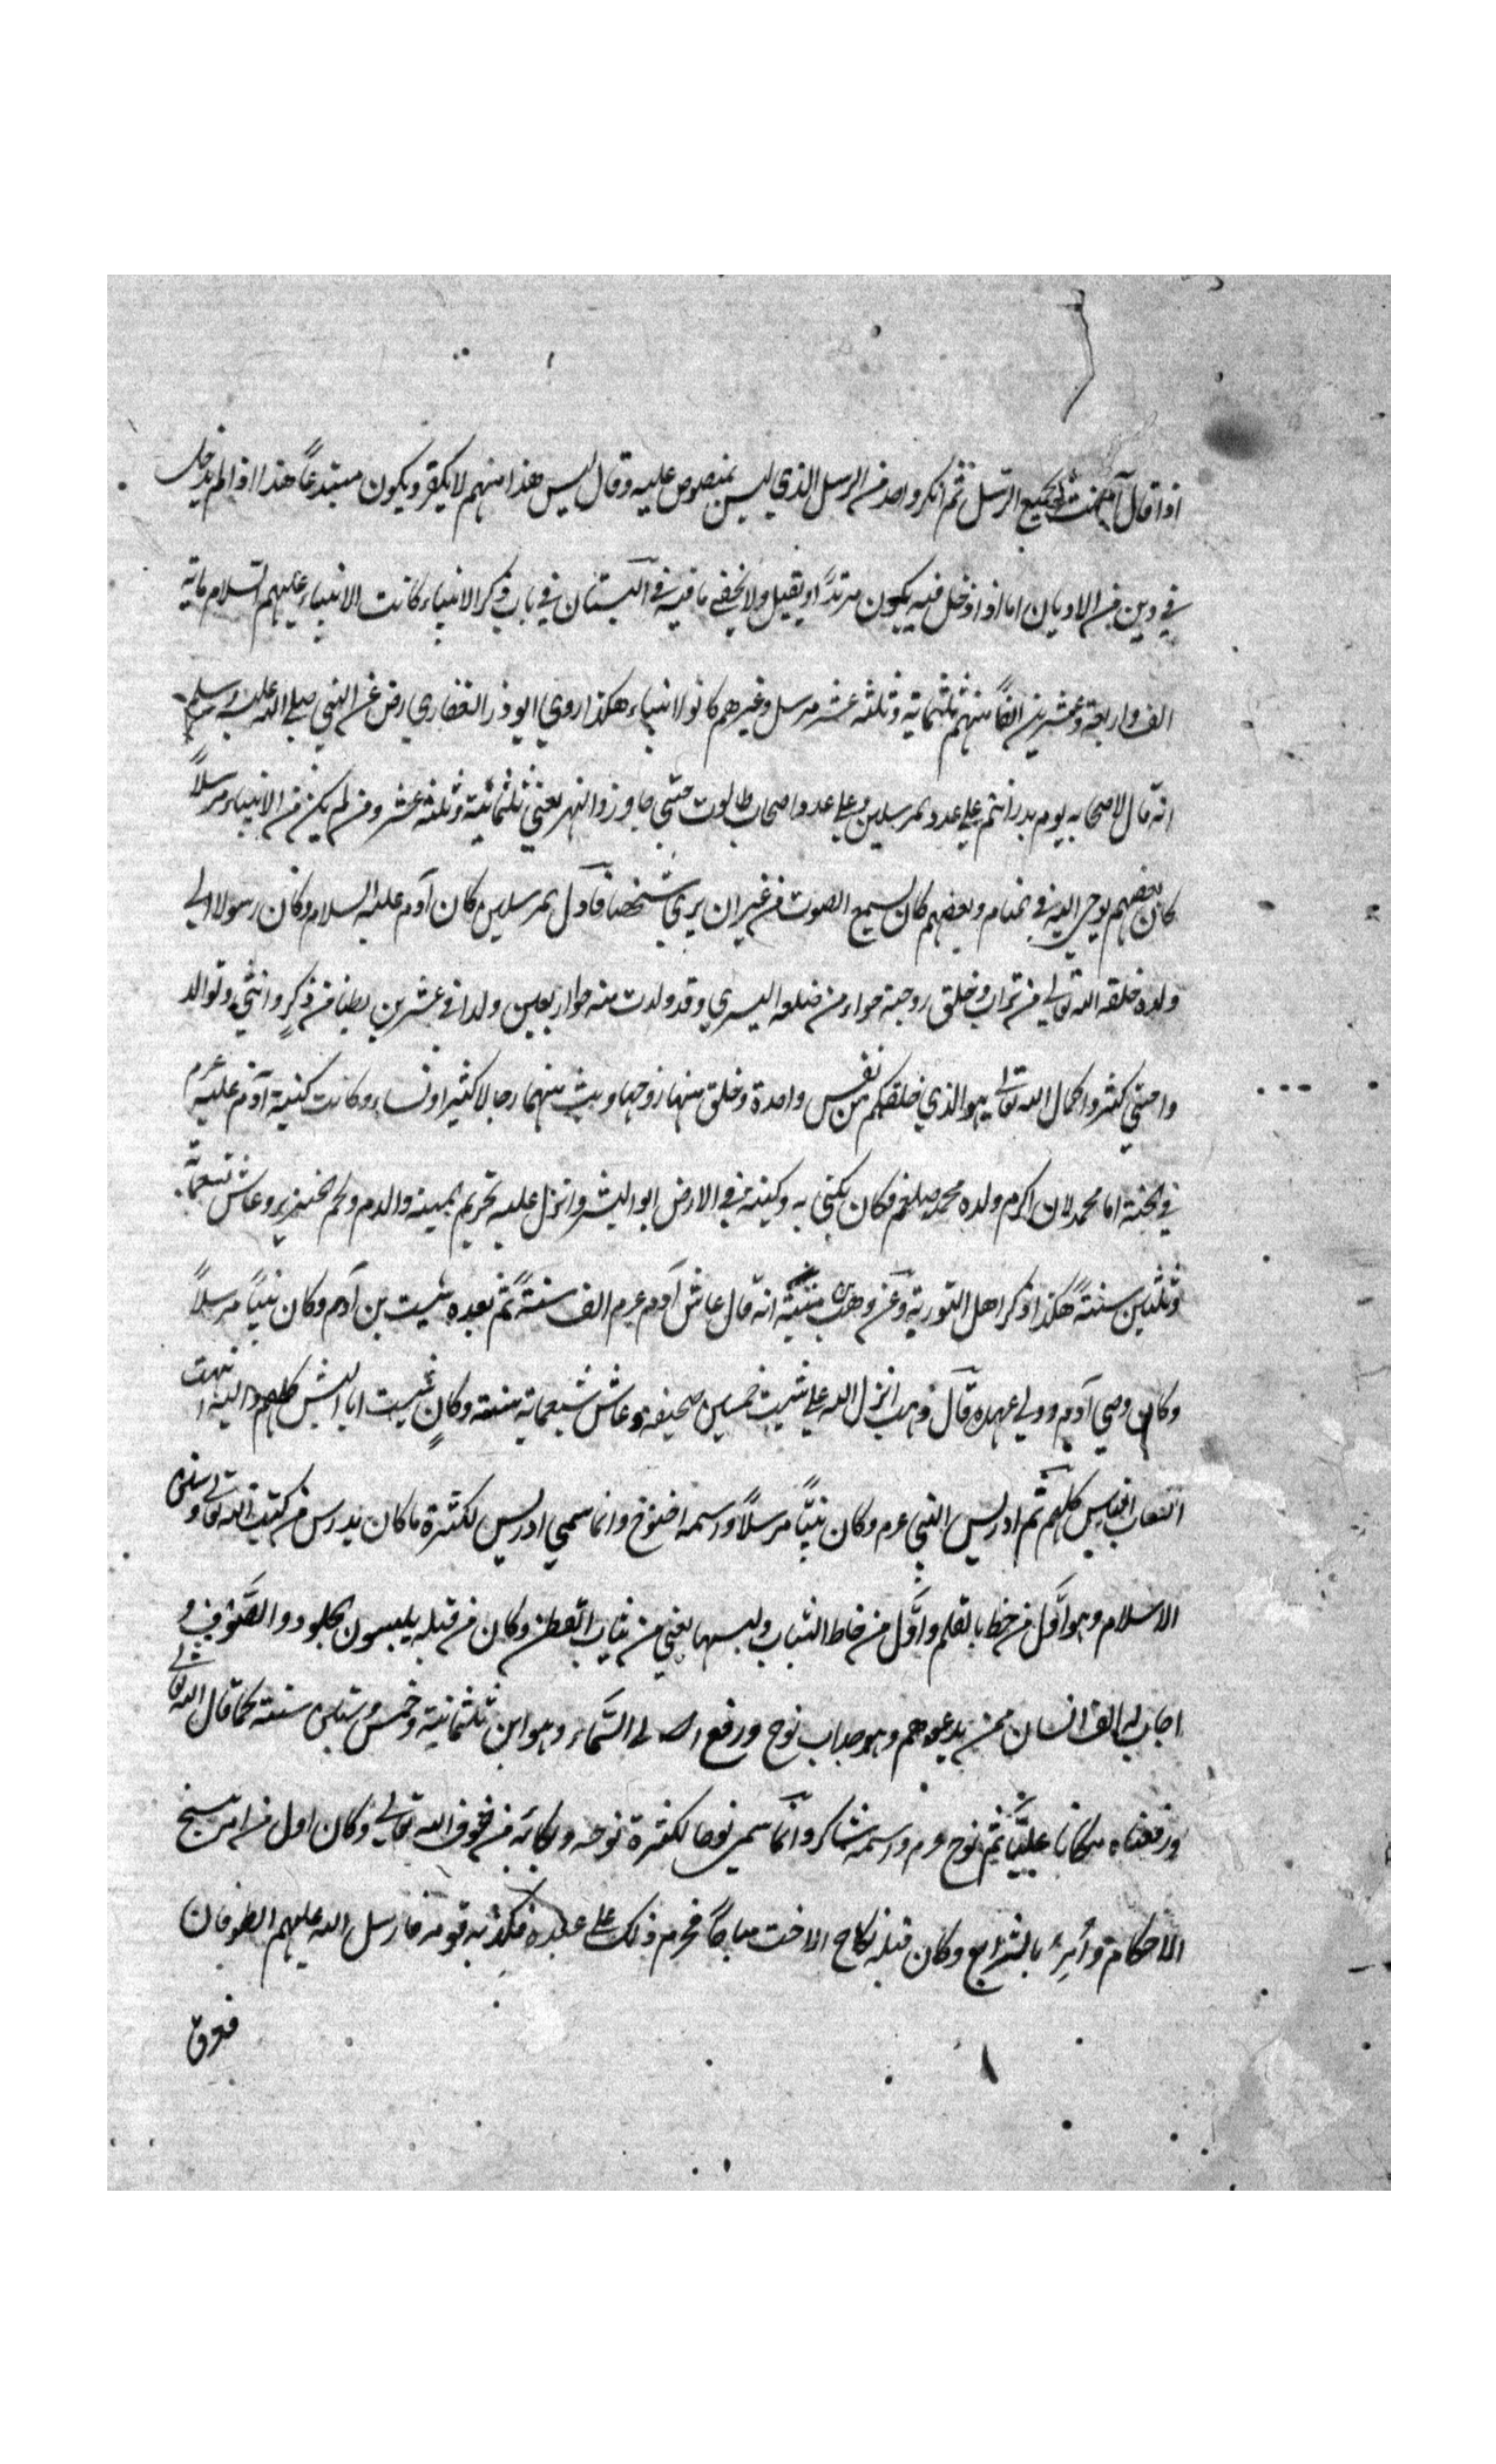 اذا قال آمنت بجميع الرسل ثم انكر واحد من الرسل الذي ليس بمنصوص عليه وقال ليس هذا منهم لا يكفر ويكون مبتدعاً هذا اذا لم يدخل
في دين من الاديان اما اذا دخل فيه يكون مرتدًّا ويقتل ولا يخفى ما فيه في البستان في باب ذكر الانبياء كانت الانبياء عليهم السلام ماية
الف واربعة وعشرين الفاً منهم ثلثماية وثلثه عشر مرسل وغيرهم كانوا انبياء هكذا روى ابو ذر الغفاري رض عن النبي صلى الله عليه وسلم
انه قال لاصحابه يوم بدر انتم على عدد المرسلين وعلى عدد اصحاب طالوت حتى جاوزوا النهر يعني ثلثمائة وثلثه عشر ومن لم يكن من الانبياء مرسلاً
كان بعضهم يوحى اليه في المنام وبعضهم كان يسمع الصوت من غير ان يرى شخصا فاول المرسلين كان آدم عليه السلام وكان رسولا الى
ولده خلقه الله تعالى من تراب وخلق زوجته حواء من ضلعه اليسرى وقد ولدت منه حوا اربعين ولدا في عشرين بطنا من ذكرٍ وانثى وتوالد
وا حتى كثروا كما قال الله تعالى هو الذي خلقكم من نفس واحدة وخلق منها زوجها وبث منهما رجالا كثيرا ونساء وكانت كنية آدم عليه عرم
في الجنة ابا محمد لان اكرم ولده محمد صلعم فكان يكنى به وكنيته في الارض ابو البشر وانزل عليه تحريم الميتة والدم ولحم الخنزير وعاش تسعمائة
وثلثين سنةً هكذا ذكر اهل التورية وعن وهب منبّه انه قال عاش آدم عرم الف سنةً ثم بعده شيت بن آدم وكان نبيًا مرسلاً
وكان وصي آدم وولي عهده قال وهب انزل الله على شيت خمسين صحيفه وعاش تسعماية سنته وكان شيت ابا البشر كلهم واليه انتهت
انساب الناس كلهم ثم ادريس النبي عرم وكان نبيًّا مرسلاً واسمه اخنوخ وانما سمي ادريس لكثرة ما كان يدرس من كتب الله تعالى وسنن
الاسلام وهو اوّل من خط بالقلم واوّل من خاط الثياب ولبسها يعني من ثياب القطن وكان من قبله يلبسون الجلود والصّوف و
اجاب له الف انسان ممن يدعوهم وهو جد اب نوح ورفع الله الى السّماء وهو ابن ثلثمائة وخمس وستين سنته كما قال الله تعالى
ورفعناه مكانا عليًّا ثم نوح عرم واسمه شاكر وانما سمى نوحا لكثرة نوحه وبكائه من خوف الله تعالى وكان اول من امر بنسخ
الاحكام وأمر بالشرايع وكان قبله نكاح الاخت مباحًا فحرم ذلك على عهده فكذبه قومه فارسل الله عليهم الطوفان
فغرق